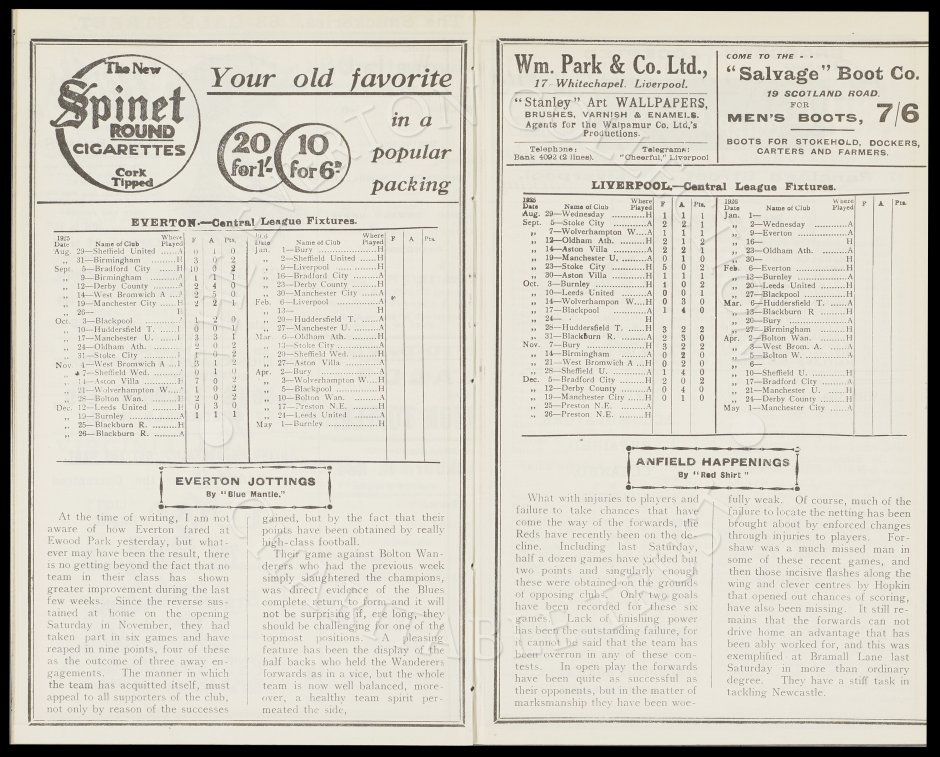 The New
Spinet
ROUND
CIGARETTES
Cork
Tipped
Your old favorite
in a
popular
packing
20
for 1/-
10
for 6D.
EVERTON.—Central League Fixtures.
1925
Date Name of Club Where Played F A Pts.
Aug. 29—Sheffield United ......A 0 1 0
„ 31—Birmingham ......H 3 0 2
Sept. 5—Bradford City ......H 10 0 2
„ 9—Birmingham ......A 1 1 1
„ 12—Derby County ......A 2 4 0
„ 14—West Bromwich A ...A 2 5 0
„ 19—Manchester City ......H 2 2 1
„ 26— H
Oct. 3—Blackpool 1 2 0
„ 10—Huddersfield T. 0 0 1
„ 17—Manchester U. 3 3 1
„ 24—Oldham Ath. 2 0 2
„ 31—Stoke City 1 0 2
Nov. 4—West Bromwich A 3 1 2
„ 7—Sheffield Wed. 0 1 0
„ 14—Aston Villa ......H 7 0 2
„ 21—Wolverhampton W...H 1 0 2
„ 28—Bolton Wan. ......H 2 0 2
Dec. 12—Leeds United ......H 0 3 0
„ 19—Burnley ......A 1 1 1
„ 25—Blackburn R. ......H
„ 26—Blackburn R. ......A
Date Name of Club Where Played F A Pts.
Jan. 1—Bury ......H
„ 2—Sheffield United ......H
„ 9—Liverpool ......H
„ 16—Bradford City ......A
„ 23—Derby County ......H
„ 30—Manchester City ......A
Feb. 6—Liverpool ......A
„ 13— H
„ 20—Huddersfield T. ......A
„ 27—Manchester U. ......A
Mar 6—Oldham Ath. ......H
„ 13—Stoke City ......A
„ 20—Sheffield Wed. ......H
„ 27—Aston Villa ......A
Apr. 2—Bury ......A
„ 3—Wolverhampton W...H
„ 5—Blackpool ......H
„ 10—Bolton Wan. ......A
„ 17—Preston N.E. ......H
„ 24—Leeds United ......A
May 1—Burnley ......H
EVERTON JOTTINGS
By "Blue Mantle."
At the time of writing, I am not
aware of how Everton fared at
Ewood Park yesterday, but what-
ever may have been the result, there
is no getting beyond the fact that no
team in their class has shown
greater improvement during the last
few weeks. Since the reverse sus-
tained at home on the opening
Saturday in November, they had
taken part in six games and have
reaped in nine points, four of these
as the outcome of three away en-
gagements. The manner in which
the team has acquitted itself, must
appeal to all supporters of the club,
not only by reason of the successes
gained, but by the fact that their
points have been obtained by really
high-class football.
Their game against Bolton Wan-
derers who had the previous week
simply slaughtered the champions,
was direct evidence of the Blues
complete return to form and it will
not be surprising if, ere long, they
should be challenging for one of the
topmost positions. A pleasing
feature has been the display of the
half backs who held the Wanderers
forwards as in a vice, but the whole
team is now well balanced, more-
over, a healthy team spirit per-
meated the side,
Wm. Park & Co. Ltd.,
17 Whitechapel, Liverpool.
"Stanley" Art WALLPAPERS,
BRUSHES, VARNISH & ENAMELS.
Agents for the Walpamur Co. Ltd.,'s
Productions.
Telephone:
Bank 4092 (2 lines).
Telegrams:
"Cheerful," Liverpool
COME TO THE - -
"Salvage" Boot Co.
19 SCOTLAND ROAD.
FOR
MEN'S BOOTS, 7/6
BOOTS FOR STOKEHOLD, DOCKERS,
CARTERS AND FARMERS.
LIVERPOOL.—Central League Fixtures.
1925
Date Name of Club Where Played F A Pts
Aug. 29—Wednesday ......H 1 1 1
Sept. 5—Stoke City ......A 2 2 1
„ 7—Wolverhampton W...A 1 1 1
„ 12—Oldham Ath. ......H 2 1 2
„ 14—Aston Villa ......A 2 2 1
„ 19—Manchester U. ......A 0 1 0
„ 23—Stoke City ......H 5 0 2
„ 30—Aston Villa ......H 1 1 1
Oct. 3—Burnley ......H 1 0 2
„ 10—Leeds United ......A 0 0 1
„ 14—Wolverhampton W...H 0 3 0
„ 17—Blackpool ......A 1 4 0
„ 24— H
„ 28—Huddersfield T. ......H 3 2 2
„ 31—Blackburn R. ......A 2 3 0
Nov. 7—Bury ......H 3 2 2
„ 14—Birmingham ......A 0 2 0
„ 21—West Bromwich A ...H 0 2 0
„ 28—Sheffield U. ......A 1 4 0
Dec. 5—Bradford City ......H 2 0 2
„ 12—Derby County ......A 0 4 0
„ 19—Manchester City ......H 0 1 0
„ 25—Preston N.E. ......A
„ 26—Preston N.E. ......H
1926
Date Name of Club Where Played F A Pts.
Jan. 1—
„ 2—Wednesday ......A
„ 9—Everton ......A
„ 16— H
„ 23—Oldham Ath. ......A
„ 30— H
Feb. 6—Everton ......H
„ 13—Burnley ......A
„ 20—Leeds United ......H
„ 27—Blackpool ......H
Mar. 6—Huddersfield T. ......A
„ 13—Blackburn R ......H
„ 20—Bury ......A
„ 27—Birmingham ......H
Apr. 2—Bolton Wan. ......H
„ 3—West Brom. A. ......A
„ 5—Bolton W. ......A
„ 6—
„ 10—Sheffield U. ......H
„ 17—Bradford City ......A
„ 21—Manchester U. ......H
„ 24—Derby County ......H
May 1—Manchester City ......A
ANFIELD HAPPENINGS
By "Red Shirt"
What with injuries to players and
failure to take chances that have
come the way of the forwards, the
Reds have recently been on the de-
cline. Including last Saturday,
half a dozen games have yielded but
two points and singularly enough
these were obtained on the grounds
of opposing club. Only two goals
have been recorded for these six
games. Lack of finishing power
has been the outstanding failure, for
it cannot be said that the team has
been overrun in any of these con-
tests. In open play the forwards
have been quite as successful as
their opponents, but in the matter of
marksmanship they have been woe-
fully weak. Of course, much of the
failure to locate the netting has been
brought about by enforced changes
through injuries to players. For-
shaw was a much missed man in
some of these recent games, and
then those incisive flashes along the
wing and clever centres by Hopkin
that opened out chances of scoring,
have also been missing. It still re-
mains that the forwards can not
drive home an advantage that has
been ably worked for, and this was
exemplified at Bramall Lane last
Saturday in more than ordinary
degree. They have a stiff task in
tackling Newcastle.